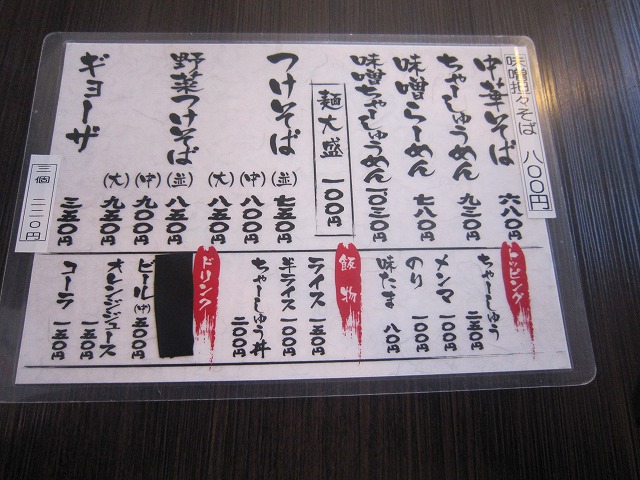 味噌担々そば 八〇〇円
中華そば 六八〇円
ちゃーしゅうめん 九三〇円
味噌らーめん 七八〇円
味噌ちゃーしゅうめん 一〇三〇円
麺大盛 一〇〇円
つけそば (並) 七五〇円
(中) 八〇〇円
(大) 八五〇円
野菜つけそば (並) 八五〇円
(中) 九〇〇円
(大) 九五〇円
ギョーザ 三五〇円
三個 二二〇円
トッピング
ちゃーしゅう 二五〇円
メンマ 一〇〇円
のり 一〇〇円
味たま 八〇円
飯物
ライス 一五〇円
半ライス 一〇〇円
ちゃーしゅう丼 二〇〇円
ドリンク
ビール(中) 五〇〇円
オレンジジュース 一五〇円
コーラ 一五〇円